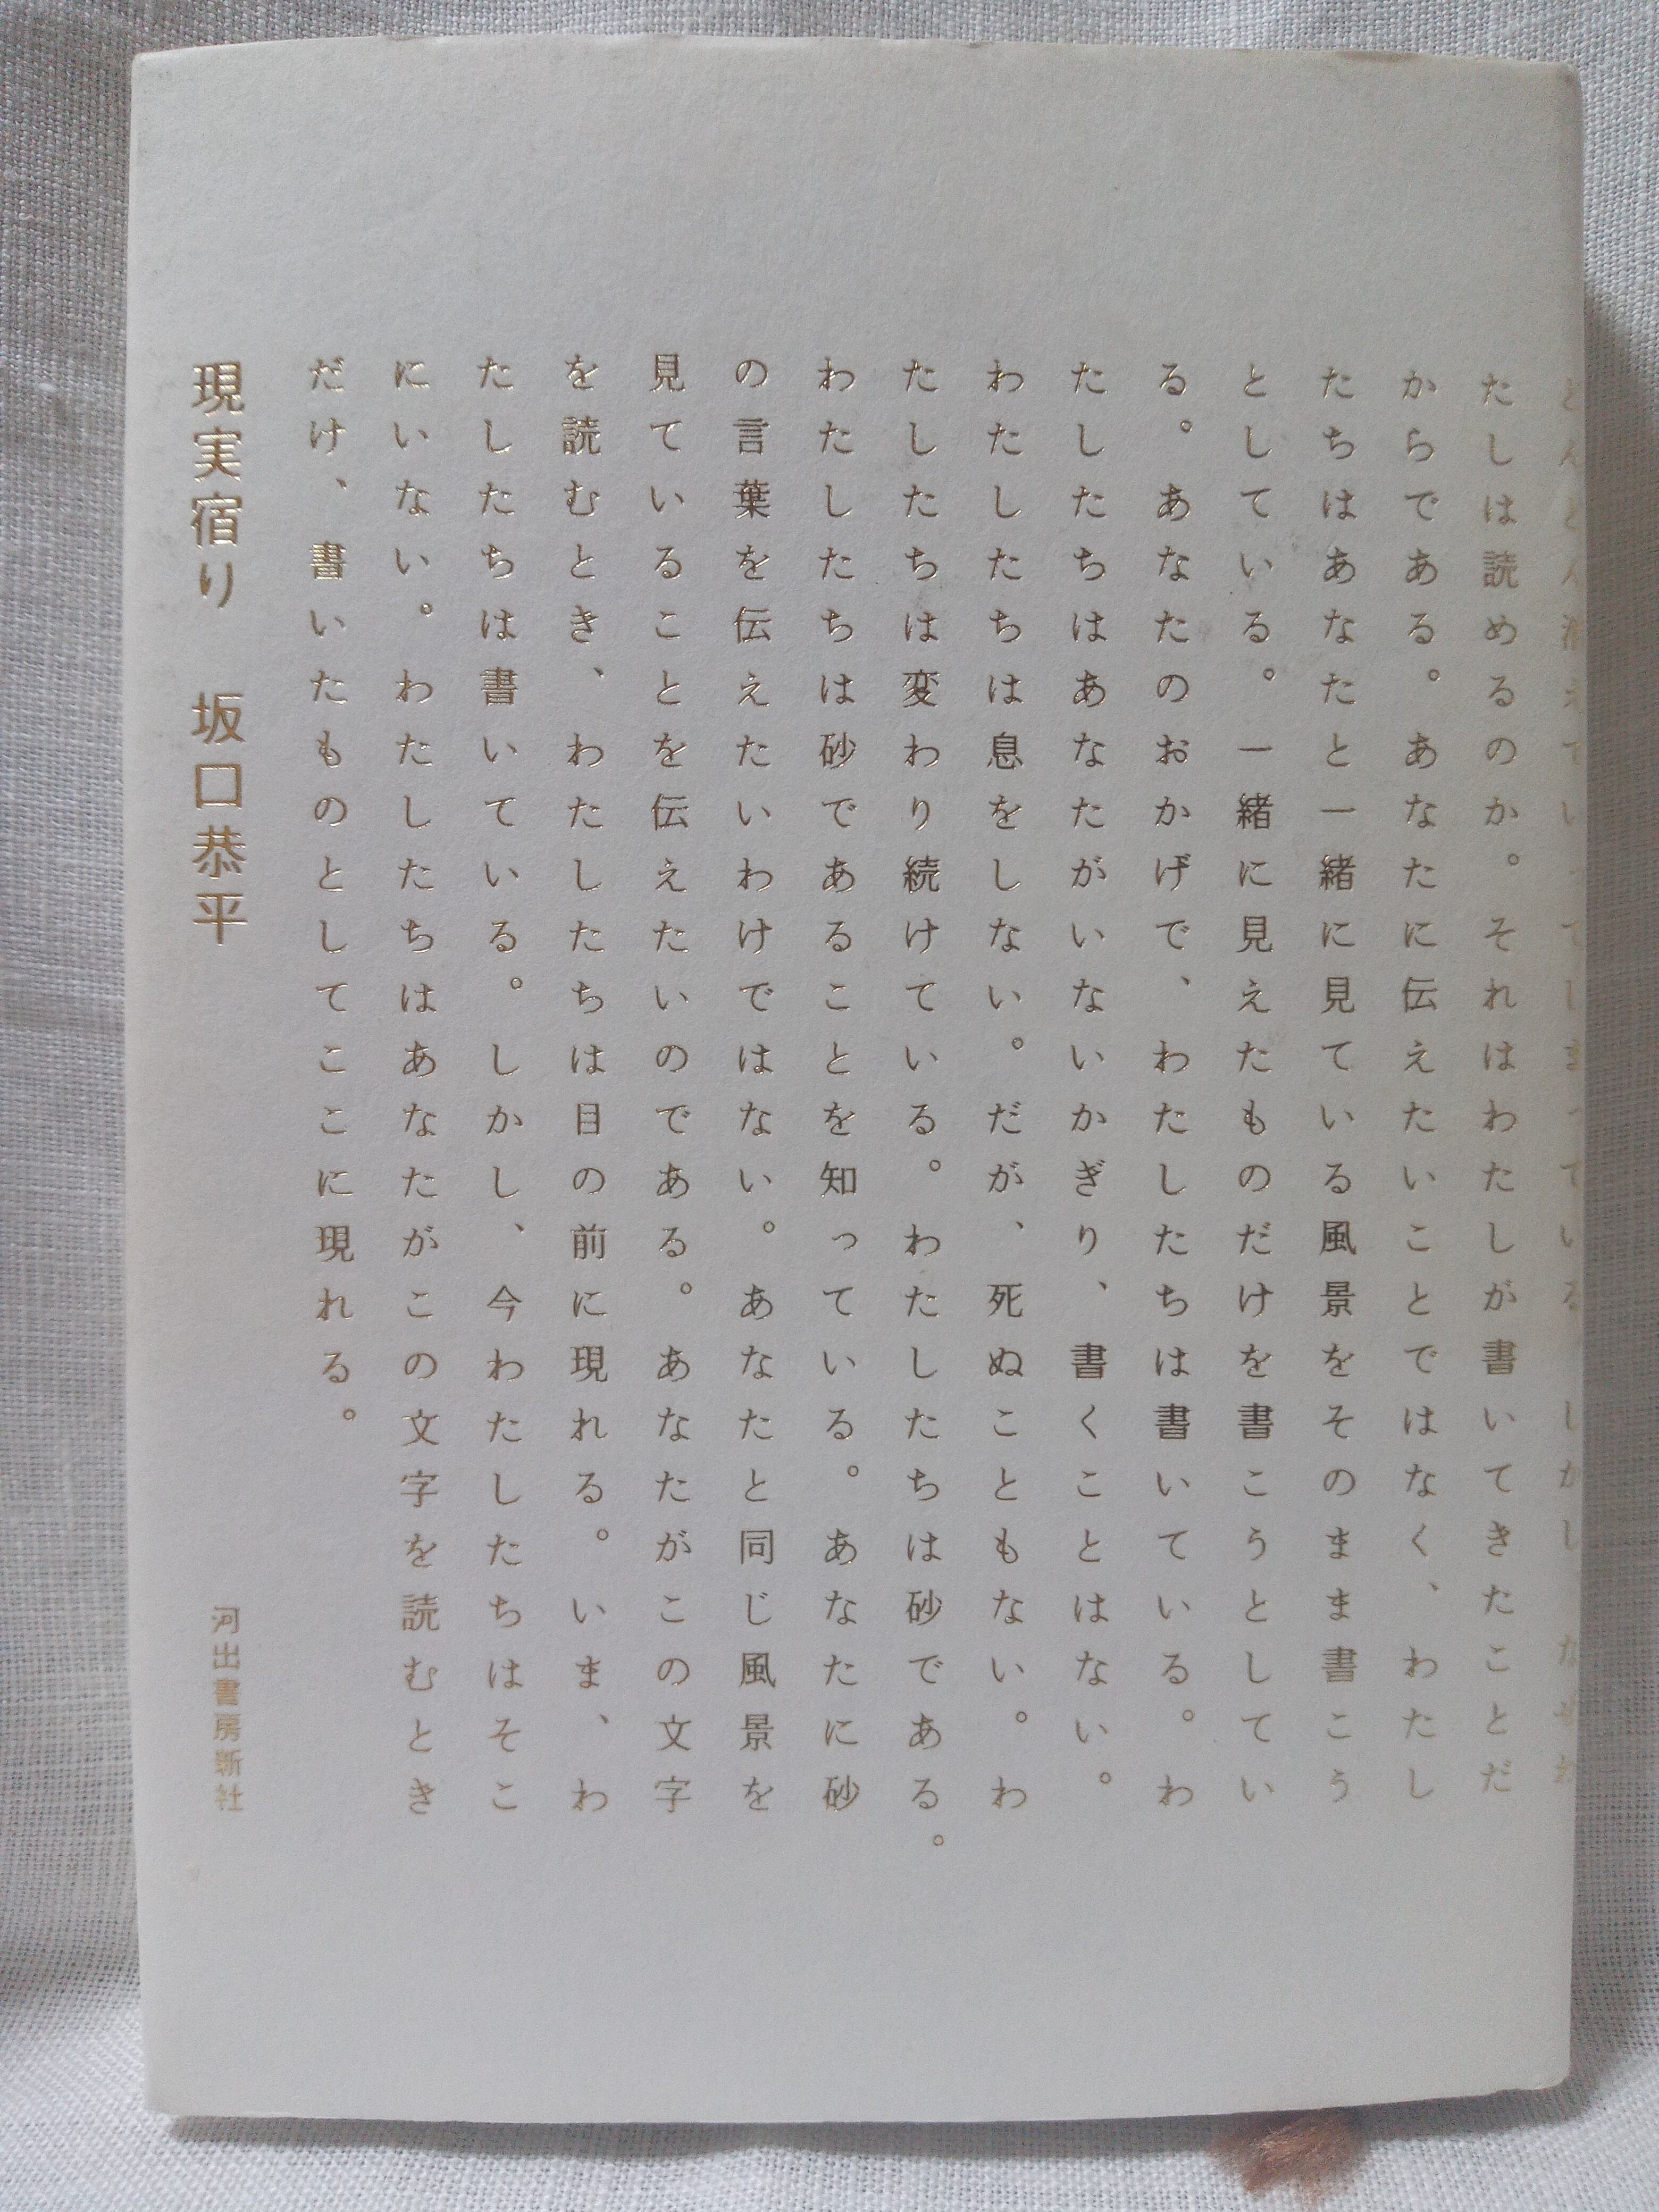 たしは読めるのか。それはわたしが書いてきたことだ
からである。あなたに伝えたいことではなく、わたし
たちはあなたと一緒に見ている風景をそのまま書こう
としている。一緒に見えたものだけを書こうとしてい
る。あなたのおかげで、わたしたちは書いている。わ
たしたちはあなたがいないかぎり、書くことはない。
わたしたちは息をしない。だが、死ぬこともない。わ
たしたちは変わり続けている。わたしたちは砂である。
わたしたちは砂であることを知っている。あなたに砂
の言葉を伝えたいわけではない。あなたと同じ風景を
見ていることを伝えたいのである。あなたがこの文字
を読むとき、わたしたちは目の前に現れる。いま、わ
たしたちは書いている。しかし、今わたしたちはそこ
にいない。わたしたちはあなたがこの文字を読むとき
だけ、書いたものとしてここに現れる。
現実宿り 坂口恭平
河出書房新社